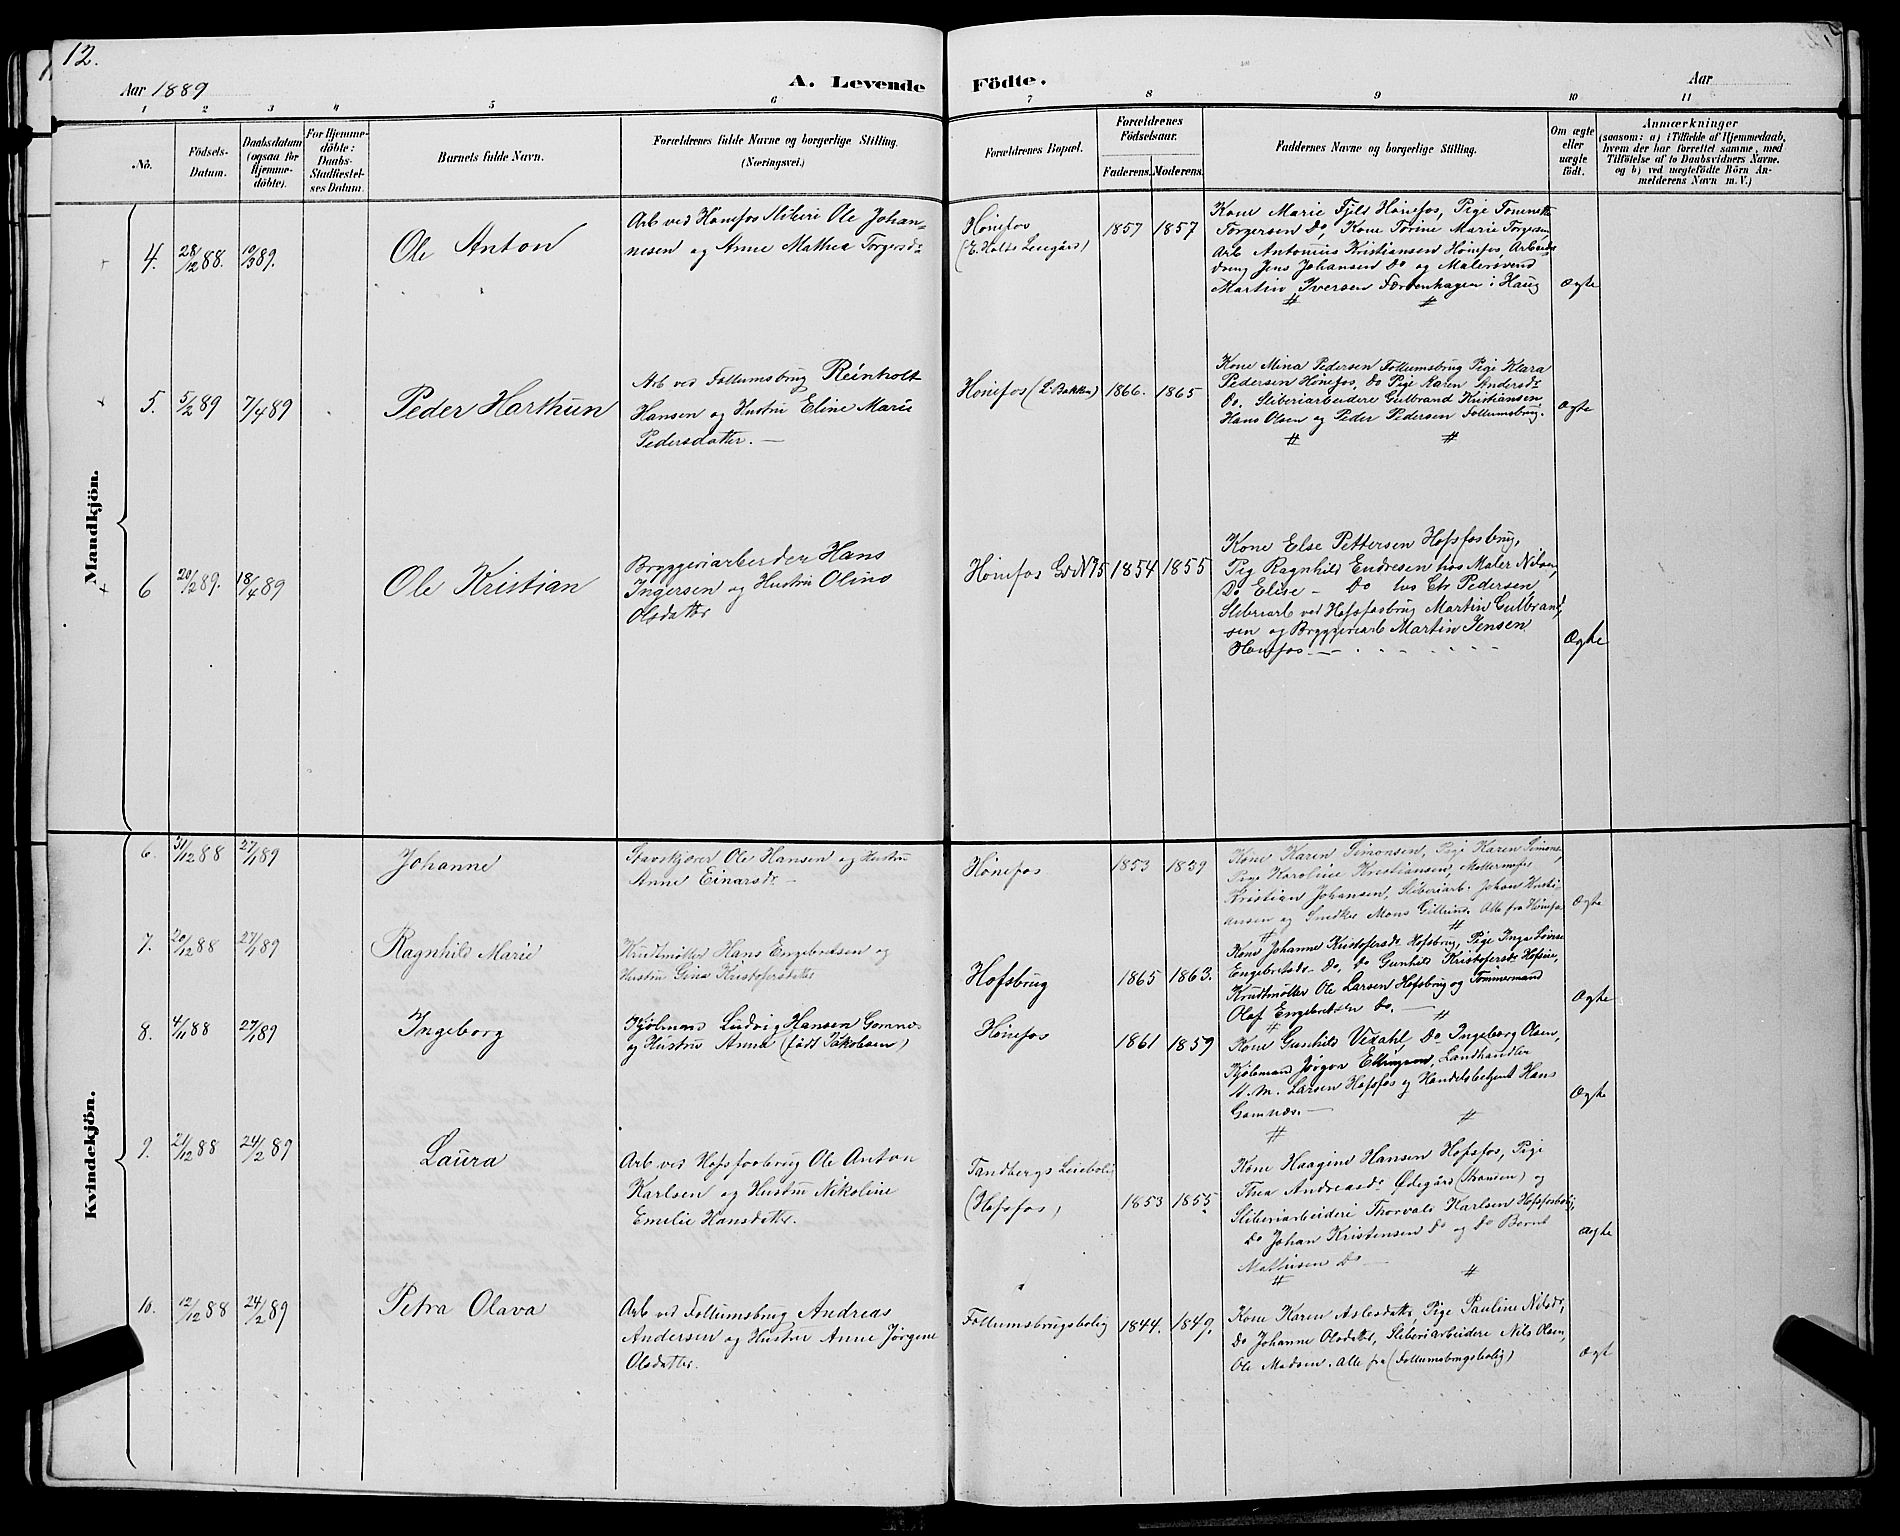 12.
Aar 1889
A. Levende
Födte.
Aar
1 2 3 4 5 6 7 8 9 10 11
No.
Födsels-
Datum.
Daabsdatum
(ogsaa for
Hjemme-
döbte).
For Hjemme-
döbte:
Daabs-
Stadfæstel-
ses Datum.
Barnets fulde Navn.
Forældrenes fulde Navne og borgerlige Stilling.
(Næringsvei.)
Forældrenes Bopæl.
Forældrenes
Födselsaar.
Faderens. Moderens.
Faddernes Navne og borgerlige Stilling.
Om ægte
eller
uægte
födt.
Anmærkninger
(saasom: a) i Tilfælde af Hjemmedaab,
hvem der har forrettet samme, med
Tilföielse af to Daabsvidners Navne.
og b) ved uægtefödte Börn An-
melderens Navn m. V.)
Mandkjön.
4. 28/12 88. 10/3 89.
Ole Anton
Arb ved Hönefos Sliberi Ole Johan-
nesen og Anne Mathea Torgersdr
Hönefos
(E. Holts Leiegård)
1857 1857
Kone Marie Fjeld Hönefos, Pige
Torgersen Do, Kone Torine Marie Torgersen,
Arb Antonius Kristiansen Hönefos, Arbeids-
dreng Jens Johansen Do og Malersvend
Martin Iversen i Haug
Ægte
5. 5/2 89 7/4 89
Peder Harthun
Arb ved Follumsbrug Reinholt
Hansen og Hustru Eline Marie
Pedersdatter. —
Hönefos (L. Bakken)
1866. 1865
Kone Mina Pedersen Follumsbrug Pige Klara
Pedersen Hönefos, Do Pige Karen Andersdr
Do. Sliberiarbeidere Gulbrand Kristiansen
Hans Olsen og Peder Pedersen Follumsbrug.
Ægte
6 20/2 89. 18/4 89
Ole Kristian
Bryggeriarbeider Hans
Ingersen og Hustru Oline
Olsdatter
Hönefos Gd N 75
1854 1855
Kone Else Pettersen Hofsfosbrug,
Pig Ragnhild Endresen hos Maler Nilsen,
Do Elise — Do hos Chr Pedersen,
Sliberiarb ved Hofsfosbrug Martin Gulbrand-
sen og Bryggeriarb Martin Jensen
Hönefos —
Ægte
Kvindekjön.
6. 31/12 88 27/1 89
Johanne
Ole Hansen og Hustru
Anne Einarsdr —
Hönefos
1853 1859
Kone Karen Simonsen, Pige Karen Simons-,
Pige Karoline Kristiansen,
Kristian Johansen, Sliberiarb. Johan Kristi-
ansen og Snedker Mons Alle fra Hönefos
Ægte
7. 20/12 88 27/1 89
Ragnhild Marie
Krudtmöller Hans Engebretsen og
Hustru Gina Kristofersdatter
Hofsbrug
1865 1863.
Kone Johanne Kristofersdr Hofsbrug, Pige Inga Lovise
Engebretsdr Do, Do Gunhild Kristofersdr
Krudtmöller Ole Larsen Hofsbrug og Tömmermand
Olaf Engebretsen Do. —
Ægte
8. 4/11 88 27/1 89
Ingeborg
Kjöbmand Ludvig Hansen Gomnes
og Hustru Anna (födt Jakobsen)
Hönefos
1861 1859
Kone Gunhild Vexahl, Do Ingeborg Olsen,
Kjöbmand Jörgen Landhandler
Larsen Hofsfos og Handelsbetjent Hans
Gomnæs. —
Ægte
9. 21/12 88 24/2 89
Laura
Arb ved Hofsfosbrug Ole Anton
Karlsen og Hustru Nikoline
Emelie Hansdatter.
Tandbergs Leiebolig
(Hofsfos)
1853 1855
Kone Haagine Hansen Hofsfos, Pige
Thea Andreasdr Ödegård og
Sliberiarbeidere Thorvald Karlsen Hofsfosbolig,
Do Johan Kristensen Do og Do Bernt
Mathisen Do —
Ægte
10. 12/12 88 24/2 89
Petra Olava
Arb ved Follumsbrug Andreas
Andersen og Hustru Anne Jörgine
Olsdatter.
Follumsbrugsbolig
1844. 1849.
Kone Karen Aslesdatter, Pige Pauline Nilsdr,
Do Johanne Olsdatter, Sliberiarbeidere Nils Olsen,
Ole Madsen. Alle fra (Follumsbrugsbolig)
Ægt